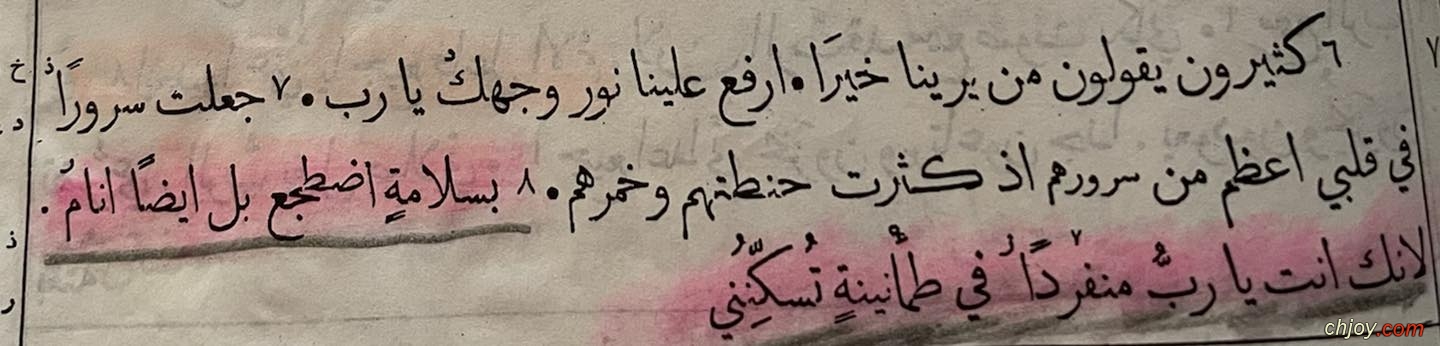 ٧
٦ كثيرون يقولون من يرينا خيرًا. ارفع علينا نور وجهك يا رب. ٧ جعلت سرورًا
في قلبي اعظم من سرورهم اذ كثرت حنطتهم وخمرهم. ٨ بسلامةٍ اضطجع بل ايضًا انامُ.
لانك انت يا ربُّ منفردًا في طمأنينةٍ تُسكِّنُني
خ ذ
د
ذ
ر
chjoy.com